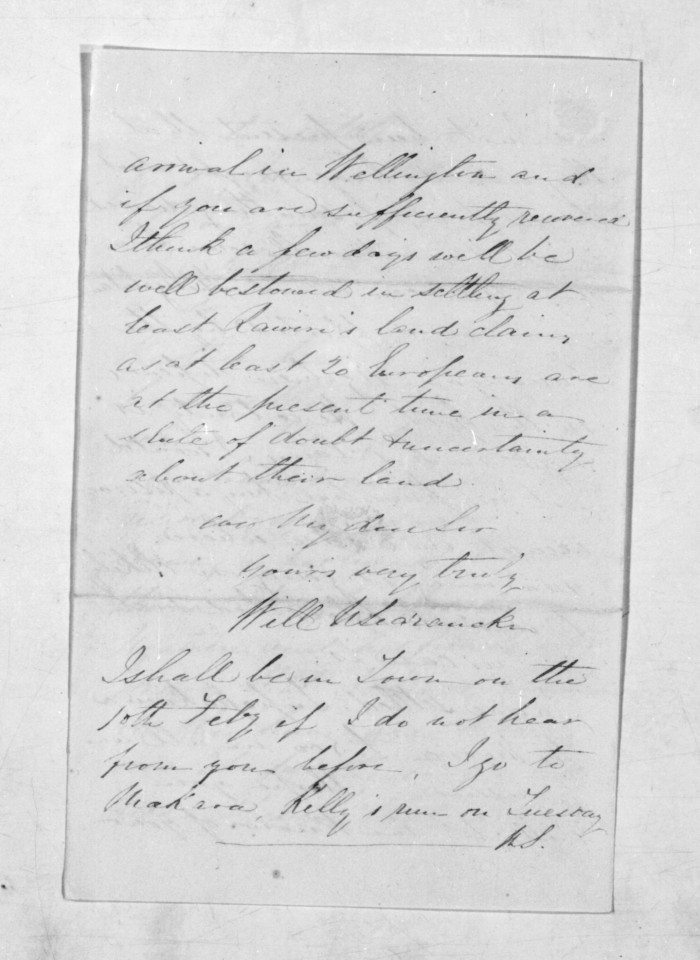 arrival in Wellington and
if you are sufficiently recovered
I think a few days will be
well bestowed in settling at
least Rawiri's land claims
as at least 20 Europeans are
at the present time in a
state of doubt & uncertainty
about their land
My dear Sir
yours very truly
Will N Searancke
I shall be in Town on the
10th Feby if I do not hear
from you before, I go to
Makara, Kelly's run on Tuesday